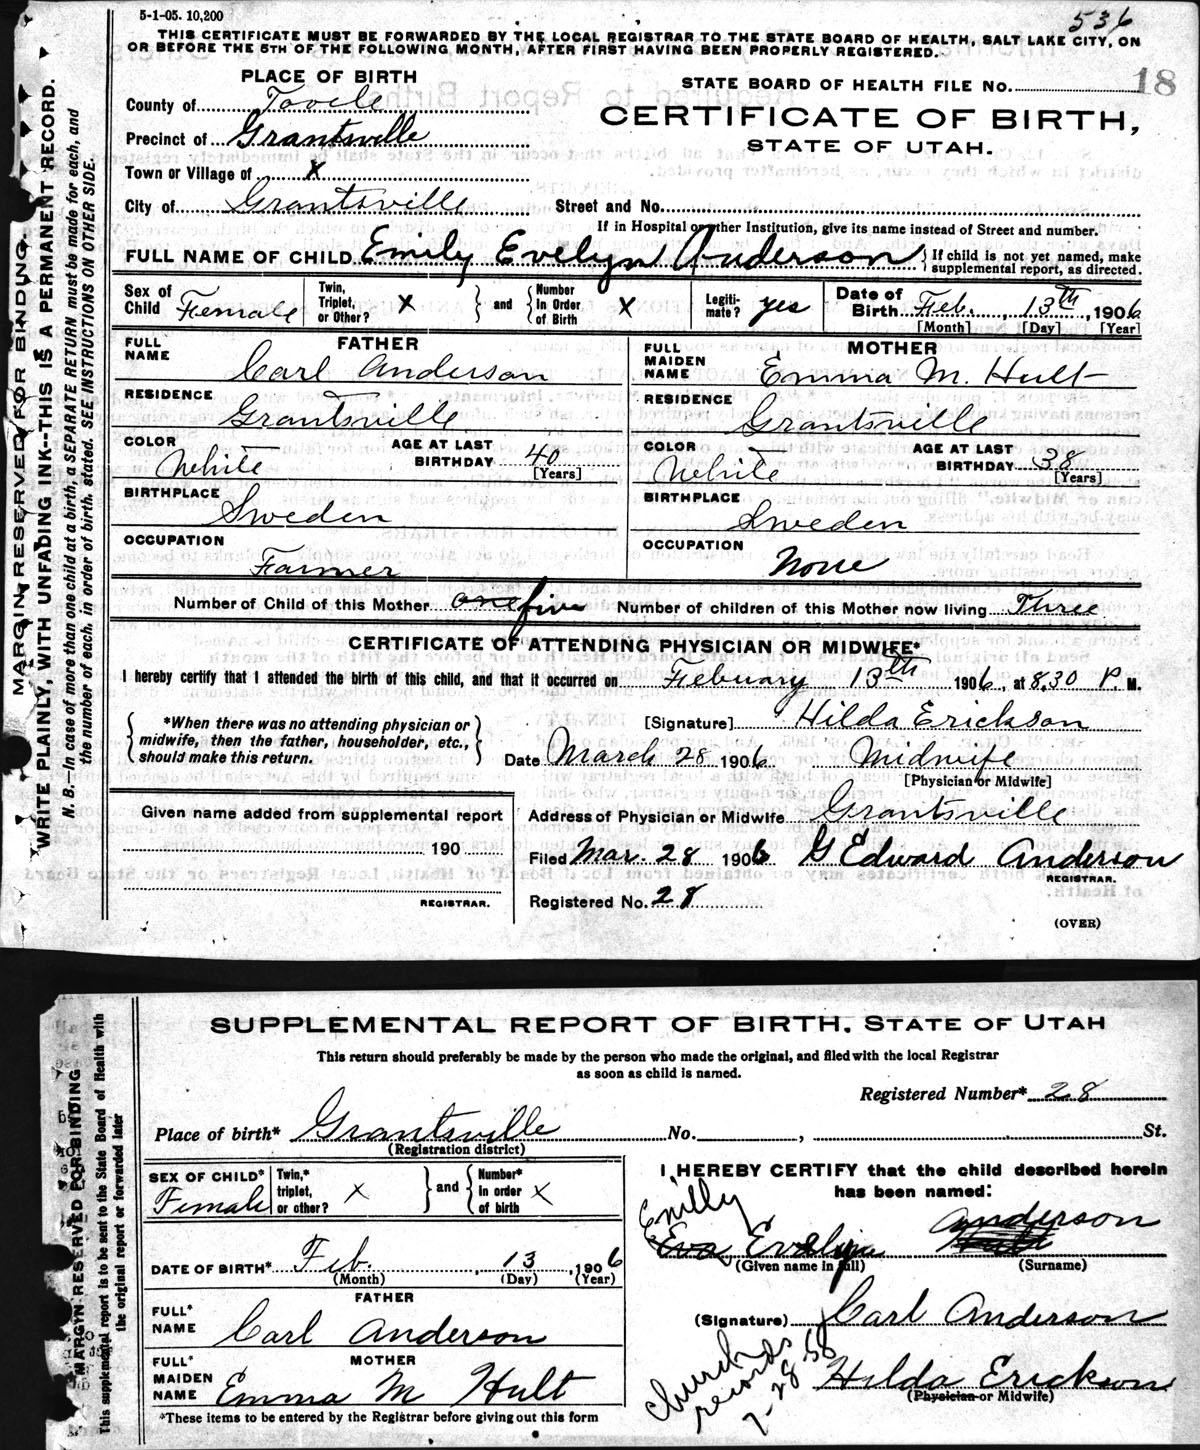 5-1-05. 10,200
536
THIS CERTIFICATE MUST BE FORWARDED BY THE LOCAL REGISTRAR TO THE STATE BOARD OF HEALTH, SALT LAKE CITY, ON
OR BEFORE THE 5TH OF THE FOLLOWING MONTH, AFTER FIRST HAVING BEEN PROPERLY REGISTERED.
MARGIN RESERVED FOR BINDING.
WRITE PLAINLY, WITH UNFADING INK--THIS IS A PERMANENT RECORD.
N. B.—In case of more than one child at a birth, a SEPARATE RETURN must be made for each, and
the number of each, in order of birth, stated. SEE INSTRUCTIONS ON OTHER SIDE.
PLACE OF BIRTH
County of Tooele
Precinct of Grantsville
Town or Village of X
City of Grantsville
STATE BOARD OF HEALTH FILE No. 18
CERTIFICATE OF BIRTH,
STATE OF UTAH.
Street and No.
If in Hospital or other Institution, give its name instead of Street and number.
FULL NAME OF CHILD Emily Evelyn Anderson } If child is not yet named, make
supplemental report, as directed.
Sex of Child Female
Twin, Triplet, or Other? X } and { Number In Order of Birth X
Legiti-mate? yes
Date of Birth Feb. 13th, 1906
[Month] [Day] [Year]
FATHER
FULL NAME Carl Anderson
RESIDENCE Grantsville
COLOR White AGE AT LAST BIRTHDAY 40 [Years]
BIRTHPLACE Sweden
OCCUPATION Farmer
MOTHER
FULL MAIDEN NAME Emma M. Hult
RESIDENCE Grantsville
COLOR White AGE AT LAST BIRTHDAY 38 [Years]
BIRTHPLACE Sweden
OCCUPATION None
Number of Child of this Mother one five Number of children of this Mother now living Three
CERTIFICATE OF ATTENDING PHYSICIAN OR MIDWIFE*
I hereby certify that I attended the birth of this child, and that it occurred on Febuary 13th 1906, at 8.30 P. M.
{ *When there was no attending physician or
midwife, then the father, householder, etc.,
should make this return. }
[Signature] Hilda Erickson
Date March 28 1906. Midwife
[Physician or Midwife]
Given name added from supplemental report
190
REGISTRAR.
Address of Physician or Midwife Grantsville
Filed Mar. 28 1906 G Edward Anderson
REGISTRAR.
Registered No. 28
(OVER)
MARGIN RESERVED FOR BINDING
This supplemental report is to be sent to the State Board of Health with
the original report or forwarded later
SUPPLEMENTAL REPORT OF BIRTH. STATE OF UTAH
This return should preferably be made by the person who made the original, and filed with the local Registrar
as soon as child is named.
Registered Number* 28
Place of birth* Grantsville No. , St.
(Registration district)
SEX OF CHILD* Female
Twin,* triplet, or other? X } and { Number* In order of birth X
DATE OF BIRTH* Feb. 13, 1906
(Month) (Day) (Year)
FATHER
FULL* NAME Carl Anderson
MOTHER
FULL* MAIDEN NAME Emma M Hult
*These items to be entered by the Registrar before giving out this form
I HEREBY CERTIFY that the child described herein
has been named:
Emily
Eva Evelyn Anderson
(Given name in full) (Surname)
(Signature) Carl Anderson
Hilda Erickson
(Physician or Midwife)
church
records
7-28-58